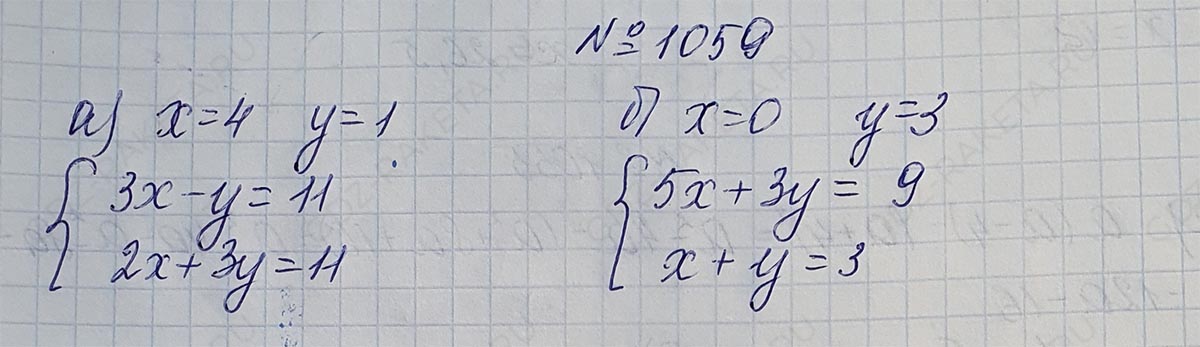 № 1059
а) x=4 y=1
3x-y=11
2x+3y=11
б) x=0 y=3
5x+3y= 9
x+y=3